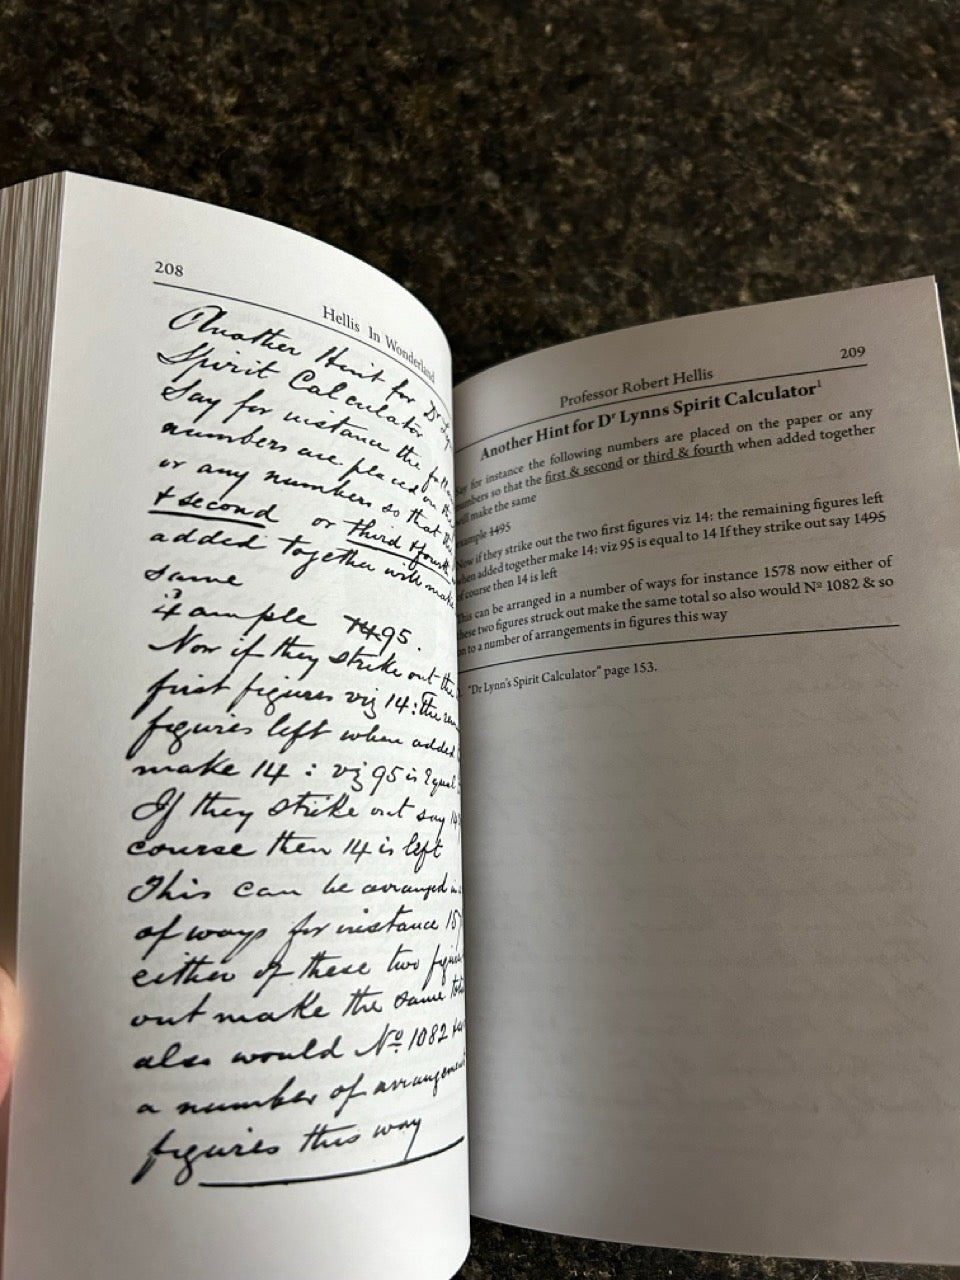 208
Hellis In Wonderland
Another Hint for Dr
Spirit Calculator
Say for instance the
numbers are placed on
or any numbers so that
& second or third & fourth
added together will make
same
Example 1495.
Now if they strike out the
first figures viz 14: The
figures left when added
make 14: viz 95 is Equal
If they strike out say
course then 14 is left
This can be arranged in
of ways for instance 15
either of these two
out make the same
also would Nº 1082 &
a number of arrangements
figures this way
209
Professor Robert Hellis
Another Hint for Dr Lynns Spirit Calculator1
for instance the following numbers are placed on the paper or any
numbers so that the first & second or third & fourth when added together
will make the same
example 1495
Now if they strike out the two first figures viz 14: the remaining figures left
when added together make 14: viz 95 is equal to 14 If they strike out say 1495
of course then 14 is left
This can be arranged in a number of ways for instance 1578 now either of
these two figures struck out make the same total so also would Nº 1082 & so
on to a number of arrangements in figures this way
"Dr Lynn's Spirit Calculator" page 153.